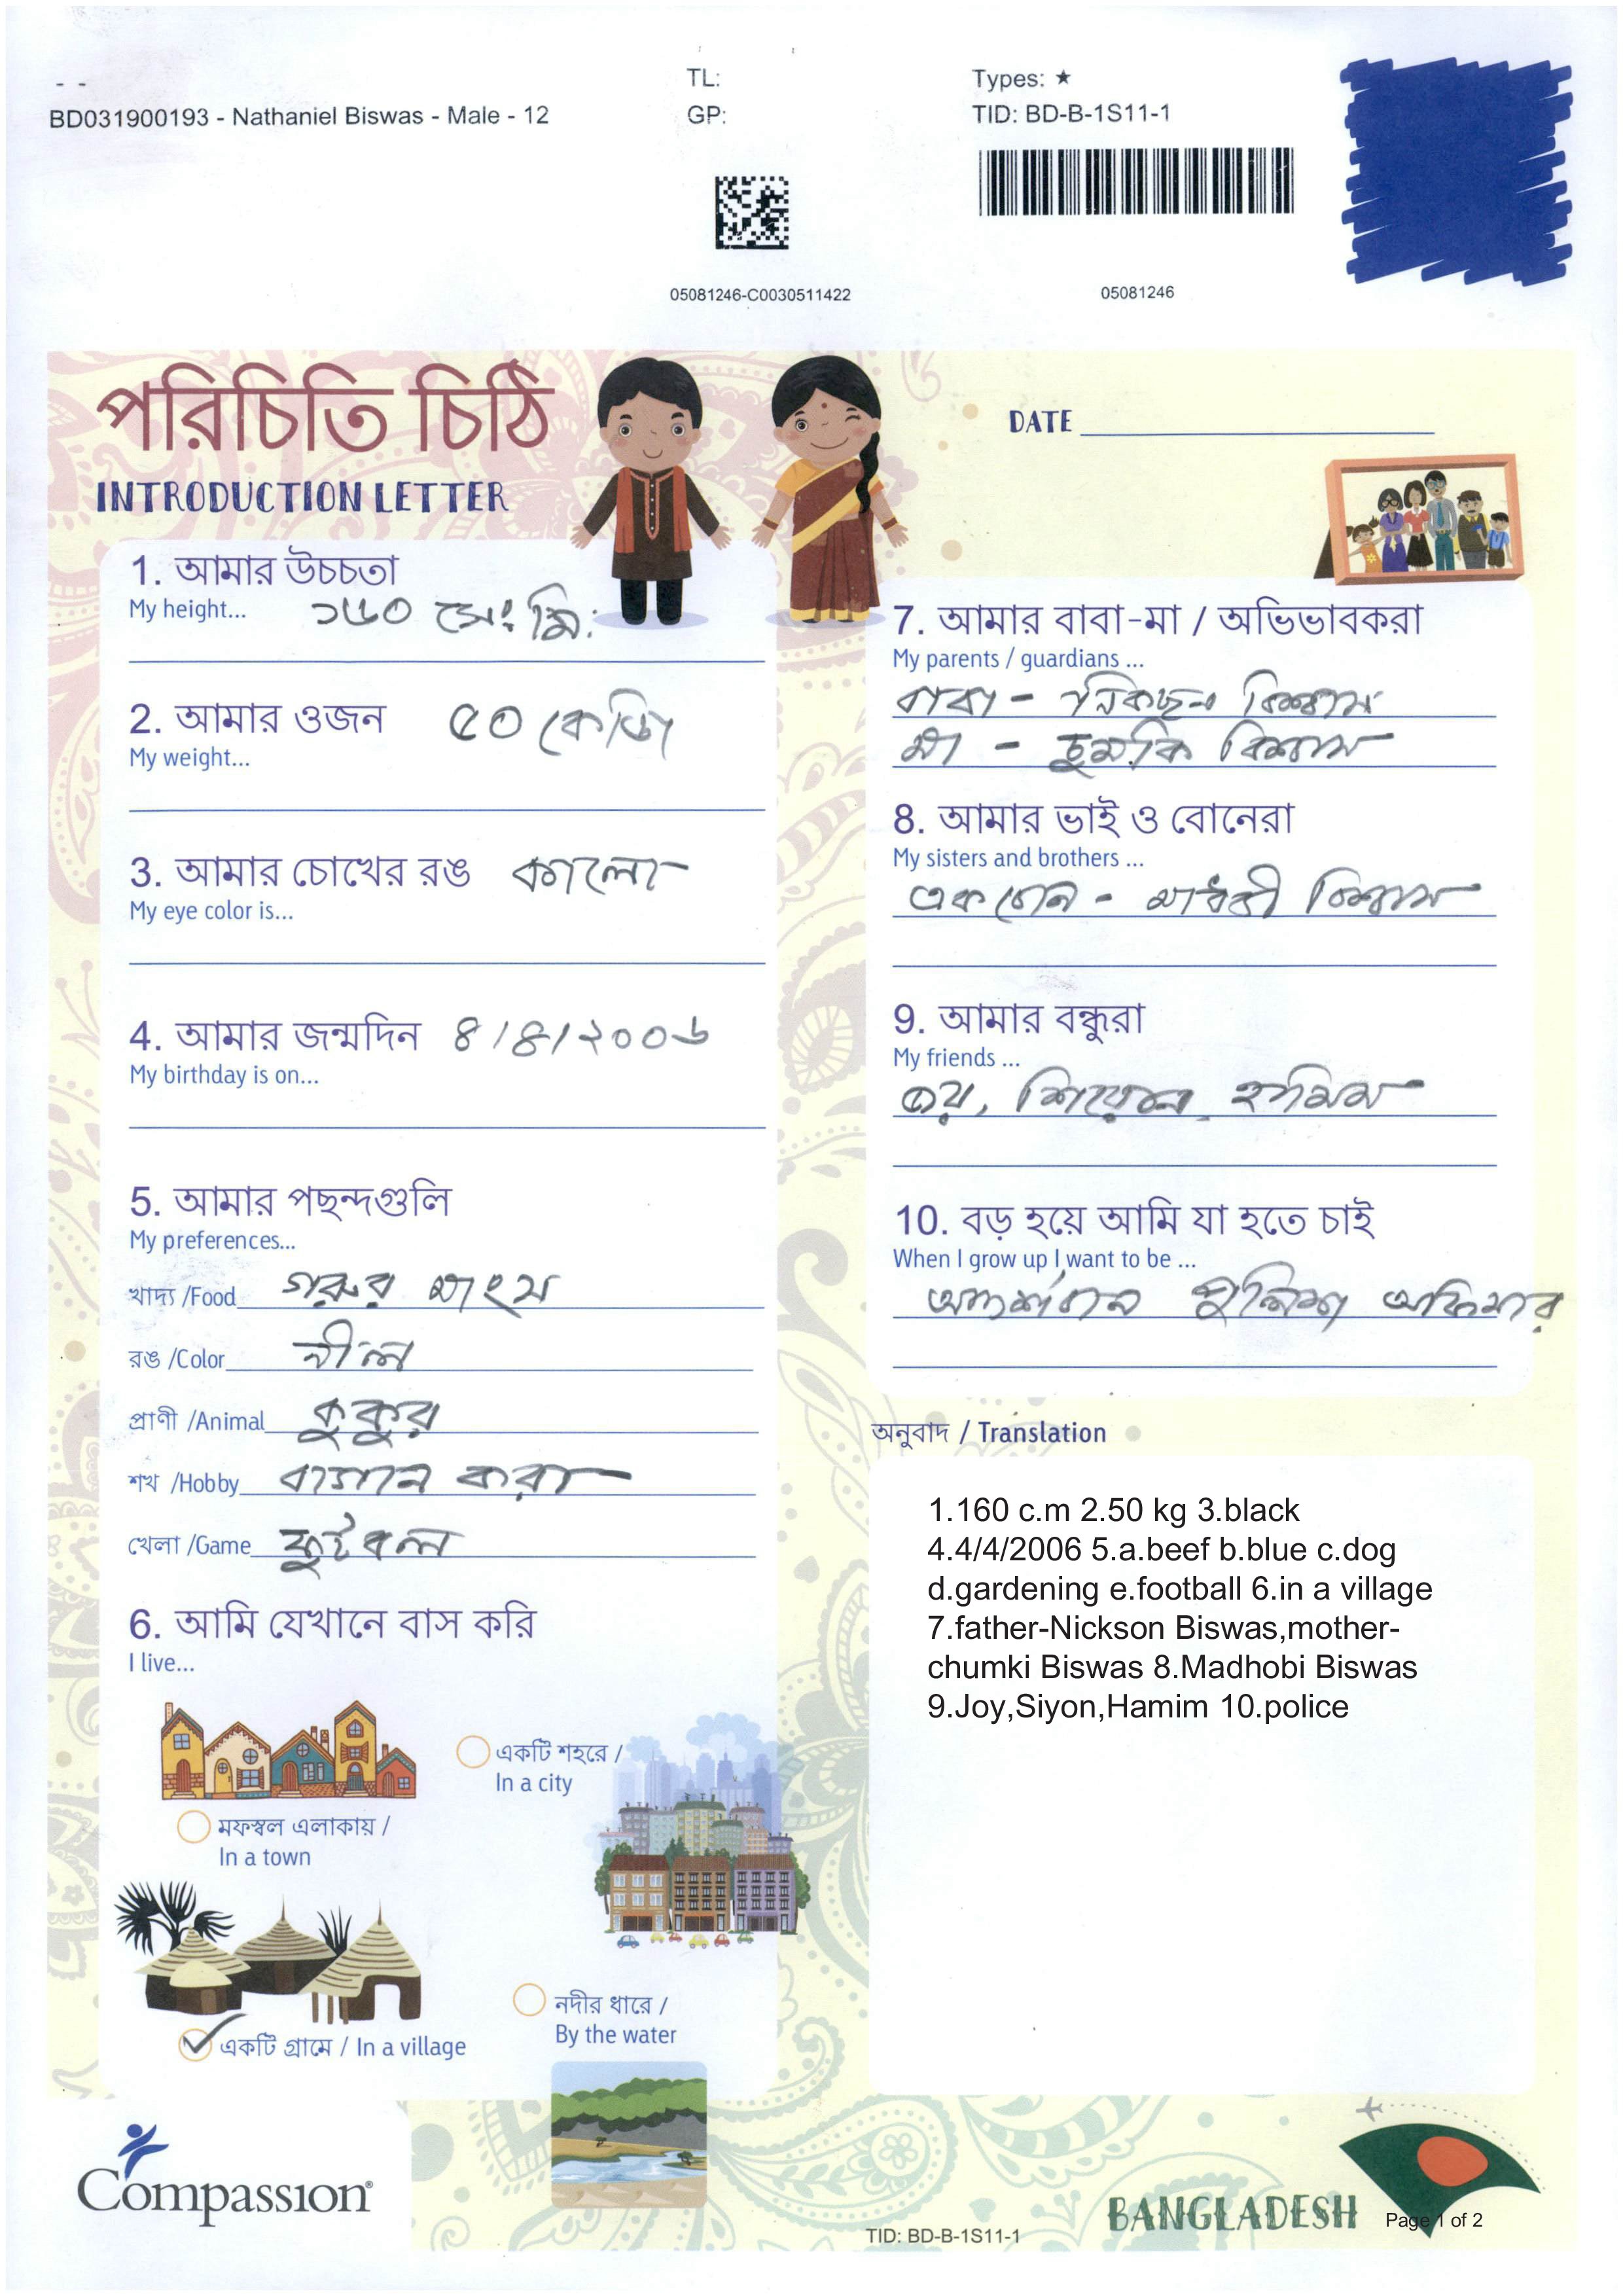 - -
BD031900193 - Nathaniel Biswas - Male - 12
TL:
GP:
Types: ★
TID: BD-B-1S11-1
05081246-C0030511422
05081246
পরিচিতি চিঠি
INTRODUCTION LETTER
DATE
1. আমার উচচতা
My height...
১৬০ সেঃ মিঃ
2. আমার ওজন
৫০ কেজি
My weight...
3. আমার চোখের রঙ
কালো
My eye color is...
4. আমার জন্মদিন
৪/৪/২০০৬
My birthday is on...
5. আমার পছন্দগুলি
My preferences...
খাদ্য /Food গরুর মাংস
রঙ /Color নীল
প্রাণী /Animal কুকুর
শখ /Hobby বাগান করা
খেলা /Game ফুটবল
6. আমি যেখানে বাস করি
I live...
একটি শহরে /
In a city
মফস্বল এলাকায় /
In a town
নদীর ধারে /
By the water
একটি গ্রামে / In a village
7. আমার বাবা-মা / অভিভাবকরা
My parents / guardians ...
বাবা - বিশ্বাস
মা - চুমকি বিশ্বাস
8. আমার ভাই ও বোনেরা
My sisters and brothers ...
এক বোন - মাধবী বিশ্বাস
9. আমার বন্ধুরা
My friends ...
জয়, হামিম
10. বড় হয়ে আমি যা হতে চাই
When I grow up I want to be ...
পুলিশ অফিসার
অনুবাদ / Translation
1.160 c.m 2.50 kg 3.black
4.4/4/2006 5.a.beef b.blue c.dog
d.gardening e.football 6.in a village
7.father-Nickson Biswas,mother-
chumki Biswas 8.Madhobi Biswas
9.Joy,Siyon,Hamim 10.police
Compassion®
TID: BD-B-1S11-1
BANGLADESH
Page 1 of 2